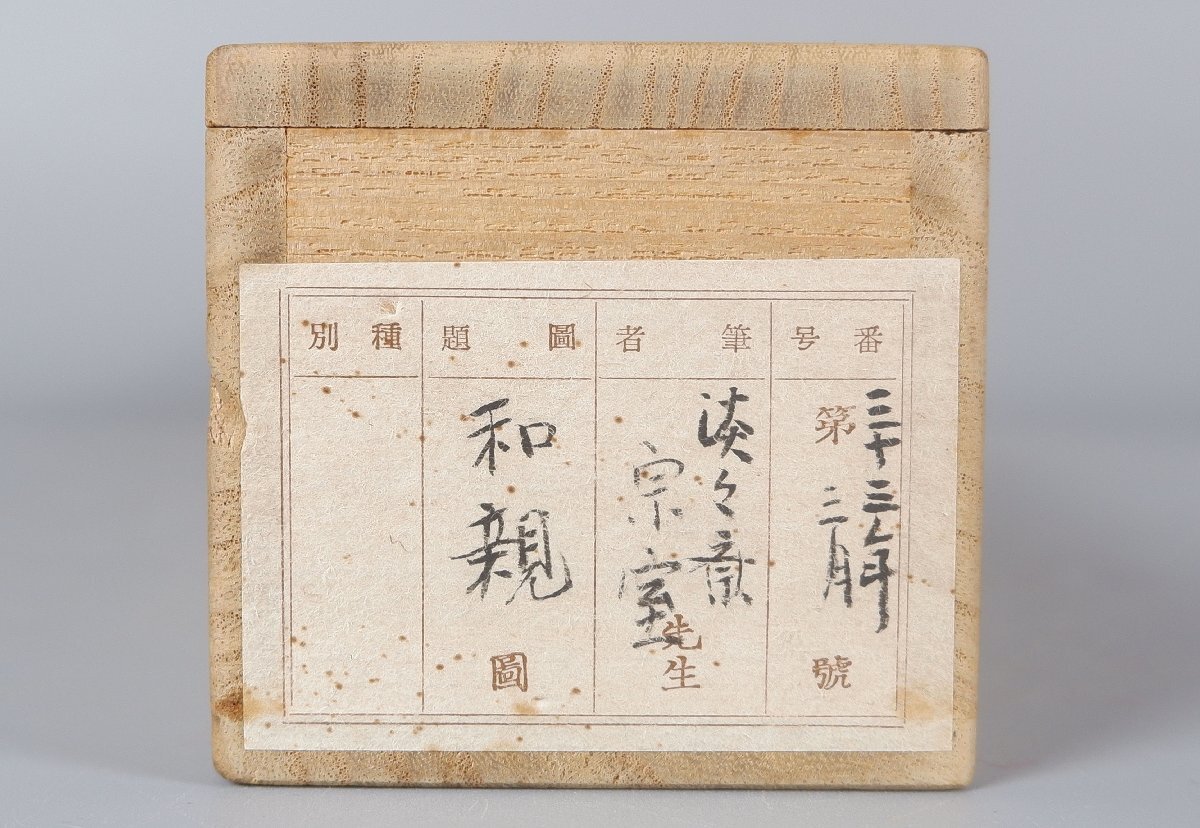 番号
三十三年
第三月號
筆者
淡々斎
宗室先生
圖題
和親圖
種別